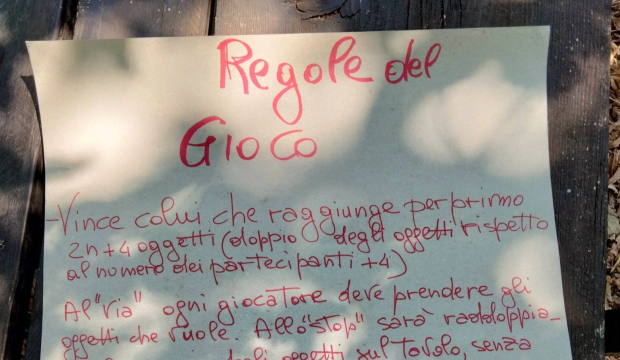 Regole del
GIOCO
- Vince colui che raggiunge per primo
2n+4 oggetti (doppio degli oggetti rispetto
al numero dei partecipanti +4)
Al "via" ogni giocatore deve prendere gli
oggetti che vuole. Allo "stop" sarà raddoppia_
degli oggetti sul tavolo, senza